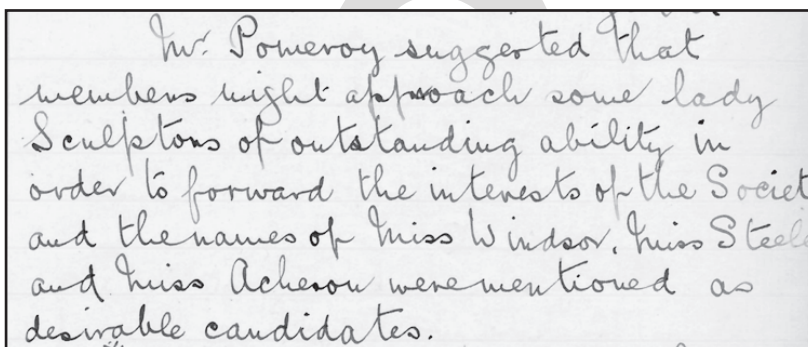 Mr. Pomeroy suggested that
members might approach some lady
Sculptors of outstanding ability in
order to forward the interests of the Societ
and the names of Miss Windsor, Miss Steele
and Miss Acheson were mentioned as
desirable candidates.